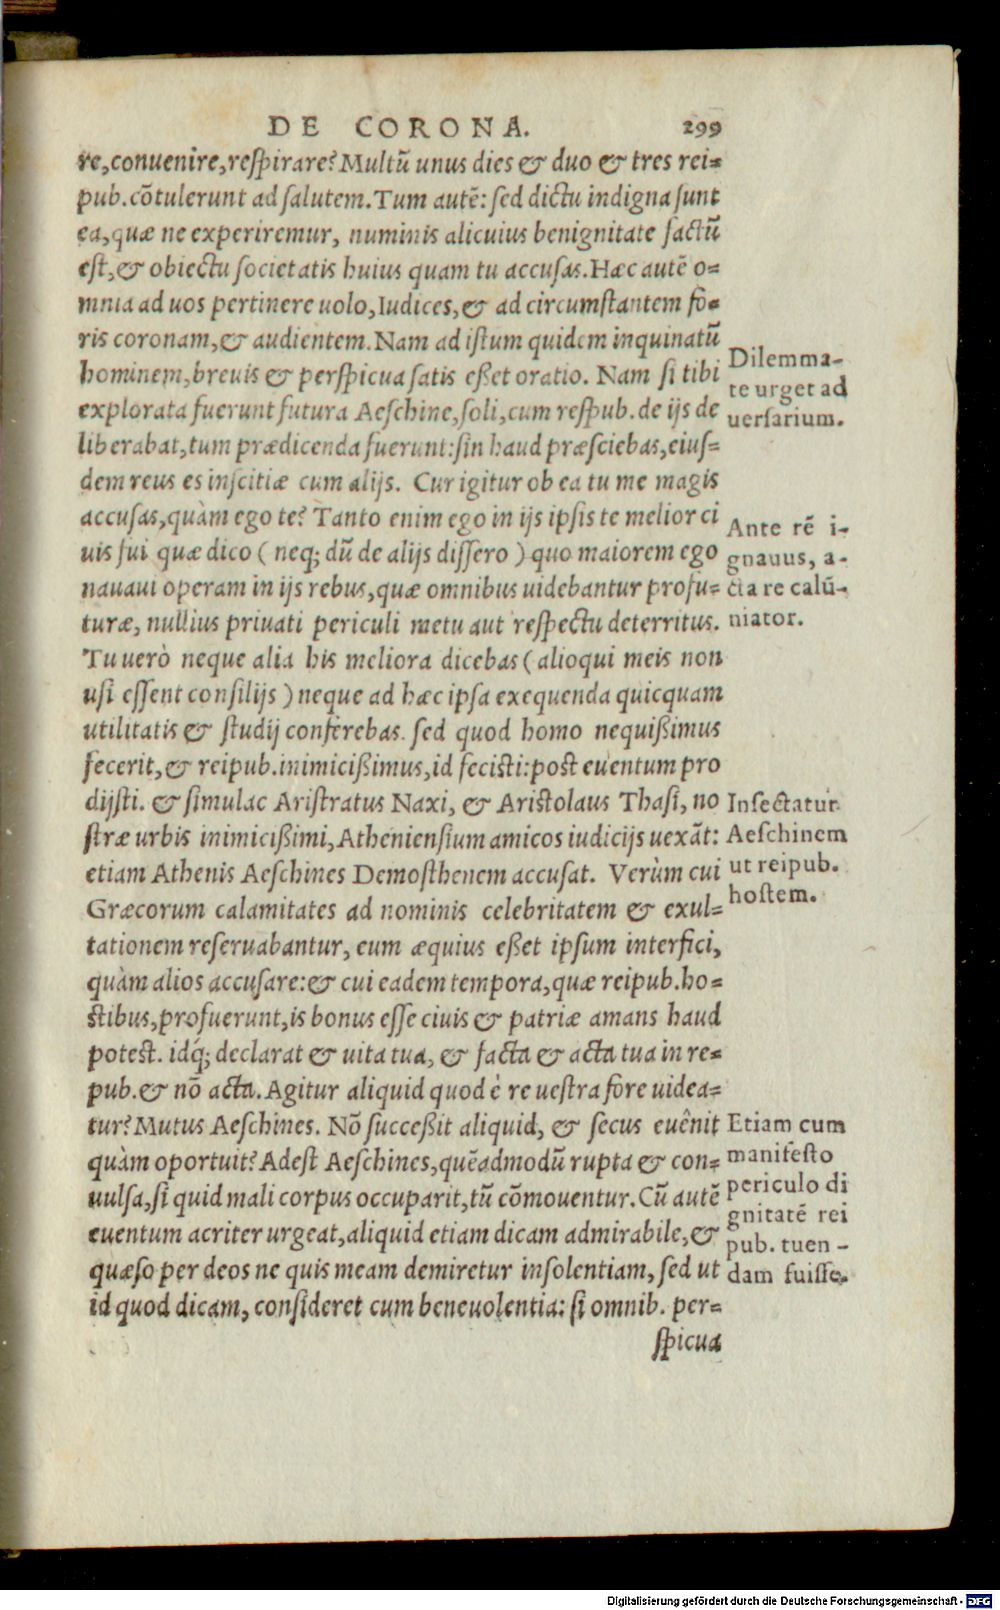 DE CORONA. 299
re, conuenire, respirare? Multũ unus dies & duo & tres rei=
pub. cõtulerunt ad salutem. Tum autẽ: sed dictu indigna sunt
ea, quæ ne experiremur, numinis alicuius benignitate factũ
est, & obiectu societatis huius quam tu accusas. Hæc autẽ o=
mnia ad uos pertinere uolo, Iudices, & ad circumstantem fo=
ris coronam, & audientem. Nam ad istum quidem inquinatũ
hominem, breuis & perspicua satis eßet oratio. Nam si tibi
explorata fuerunt futura Aeschine, soli, cum respub. de ijs de
liberabat, tum prædicenda fuerunt: sin haud præsciebas, eius=
dem reus es inscitiæ cum alijs. Cur igitur ob ea tu me magis
accusas, quàm ego te? Tanto enim ego in ijs ipsis te melior ci
uis fui quæ dico (neq; dũ de alijs dissero) quo maiorem ego
nauaui operam in ijs rebus, quæ omnibus uidebantur profu=
turæ, nullius priuati periculi metu aut respectu deterritus.
Tu uerò neque alia his meliora dicebas (alioqui meis non
usi essent consilijs) neque ad hæc ipsa exequenda quicquam
utilitatis & studij conferebas. sed quod homo nequißimus
fecerit, & reipub. inimicißimus, id fecisti: post euentum pro
dijsti. & simulac Aristratus Naxi, & Aristolaus Thasi, no
stræ urbis inimicißimi, Atheniensium amicos iudicijs uexãt:
etiam Athenis Aeschines Demosthenem accusat. Verùm cui
Græcorum calamitates ad nominis celebritatem & exul=
tationem reseruabantur, eum æquius eßet ipsum interfici,
quàm alios accusare: & cui eadem tempora, quæ reipub. ho=
stibus, profuerunt, is bonus esse ciuis & patriæ amans haud
potest. idq́; declarat & uita tua, & facta & acta tua in re=
pub. & nõ acta. Agitur aliquid quod è re uestra fore uidea=
tur? Mutus Aeschines. Nõ succeßit aliquid, & secus euênit
quàm oportuit? Adest Aeschines, quẽadmodũ rupta & con=
uulsa, si quid mali corpus occuparit, tũ cõmouentur. Cũ autẽ
euentum acriter urgeat, aliquid etiam dicam admirabile, &
quæso per deos ne quis meam demiretur insolentiam, sed ut
id quod dicam, consideret cum beneuolentia: si omnib. per=
spicua
Dilemma-
te urget ad
uersarium.
Ante rẽ i-
gnauus, a-
cta re calũ-
niator.
Insectatur
Aeschinem
ut reipub.
hostem.
Etiam cum
manifesto
periculo di
gnitatẽ rei
pub. tuen-
dam fuisse.
Digitalisierung gefördert durch die Deutsche Forschungsgemeinschaft - DFG